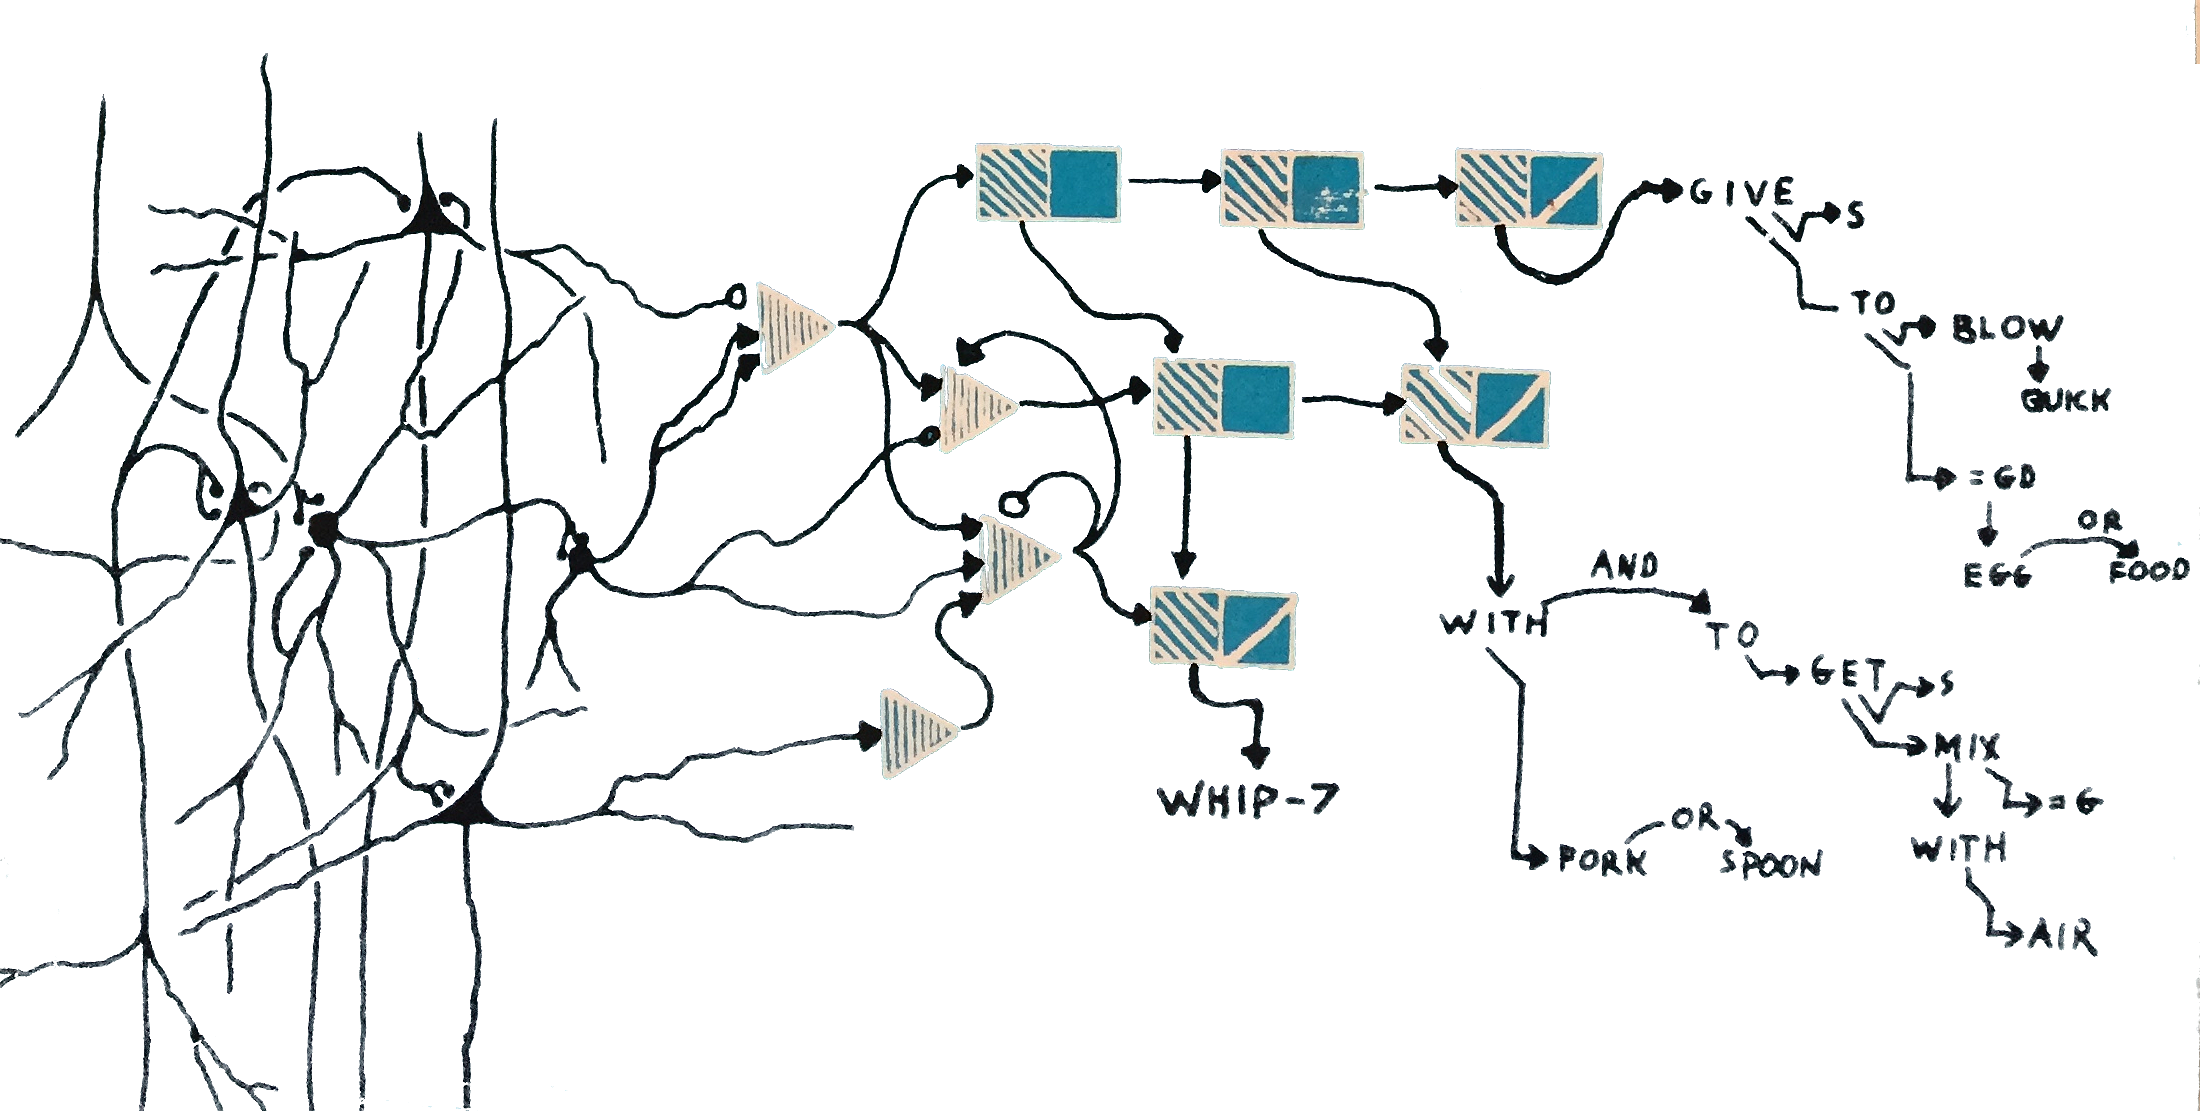 GIVE
S
TO
BLOW
QUICK
= GD
EGG
OR
FOOD
WITH
AND
TO
GET
S
MIX
= G
WITH
AIR
FORK
OR
SPOON
WHIP-7